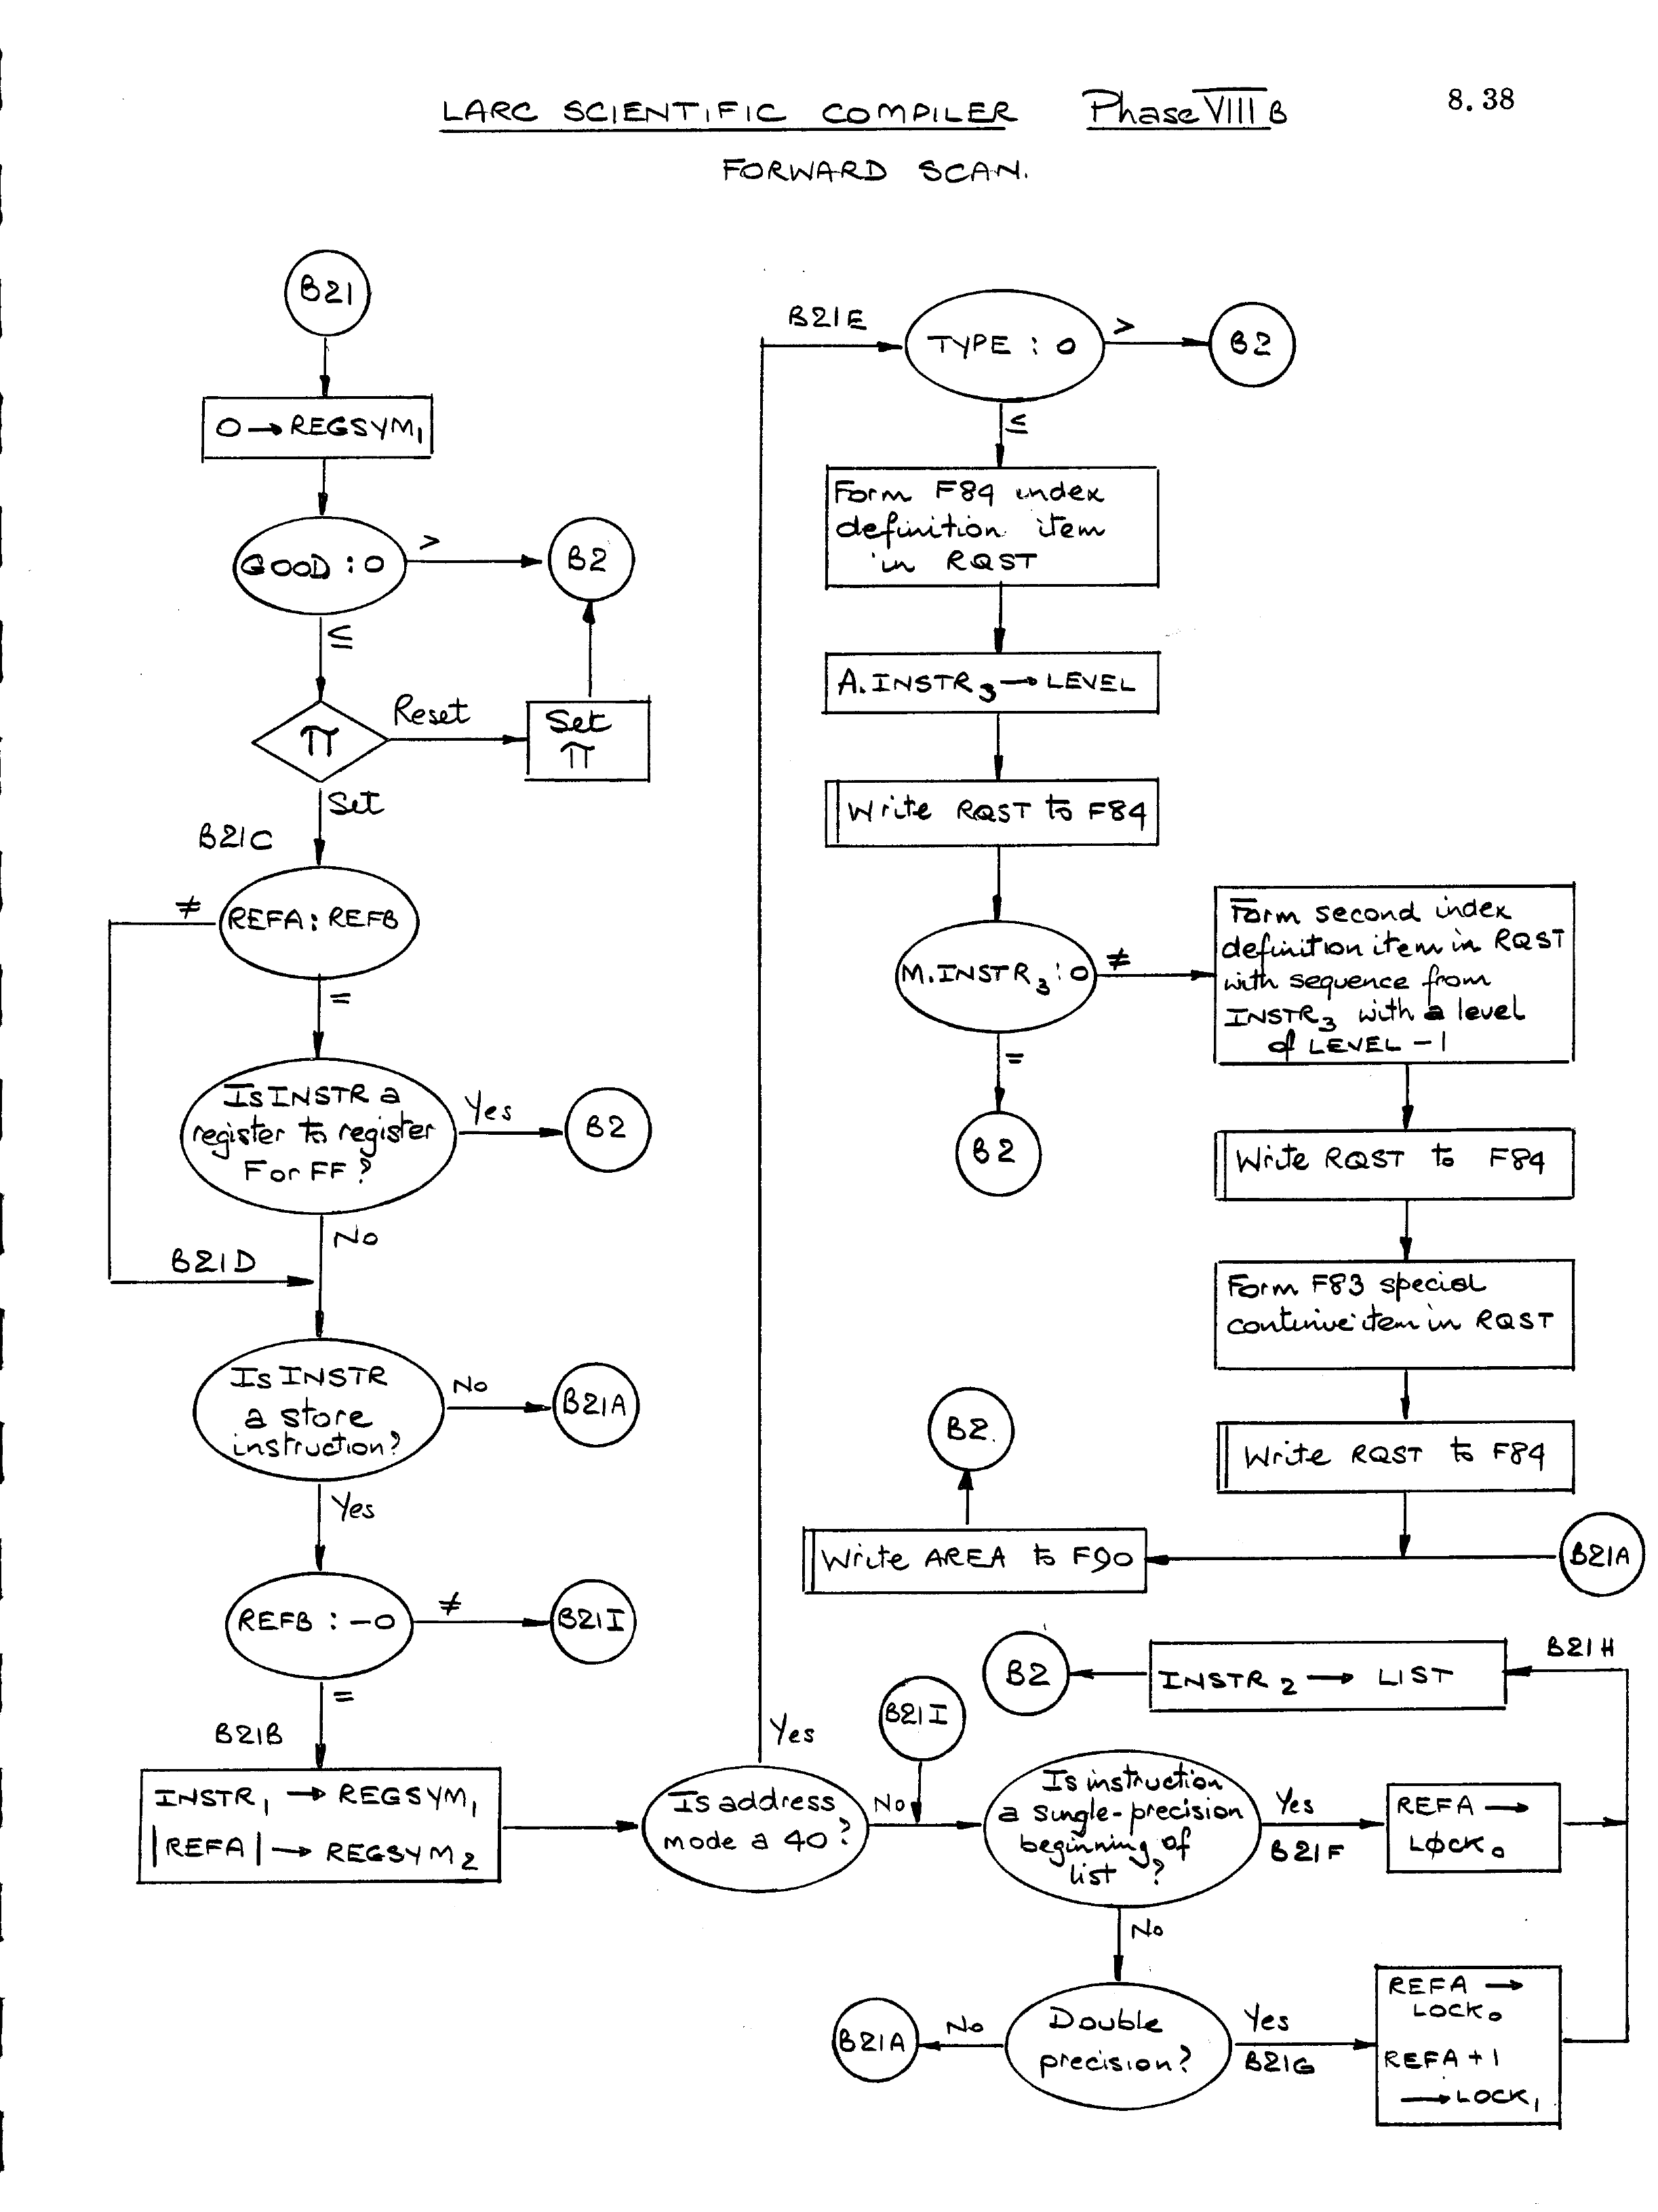 LARC SCIENTIFIC COMPILER Phase VIII B
8.38
FORWARD SCAN.
B21
0 → REGSYM₁
GOOD : 0
>
B2
≤
π
Reset
Set
π
Set
B21C
REFA : REFB
≠
=
Is INSTR a
register to register
F or FF?
Yes
B2
No
B21D
Is INSTR
a store
instruction?
No
B21A
Yes
REFB : -0
≠
B21I
=
B21B
INSTR₁ → REGSYM₁
|REFA| → REGSYM₂
Is address
mode a 40?
Yes
No
B21E
TYPE : 0
>
B2
≤
Form F84 index
definition item
in RQST
A.INSTR₃ → LEVEL
Write RQST to F84
M.INSTR₃ : 0
≠
=
B2
Form second index
definition item in RQST
with sequence from
INSTR₃ with a level
of LEVEL -1
Write RQST to F84
Form F83 special
continue item in RQST
Write RQST to F84
B21A
Write AREA to F90
B2.
B21I
Is instruction
a single-precision
beginning of
list?
Yes
B21F
REFA →
LØCK₀
B21H
INSTR₂ → LIST
B2
No
Double
precision?
No
B21A
Yes
B21G
REFA →
LOCK₀
REFA + 1
→ LOCK₁